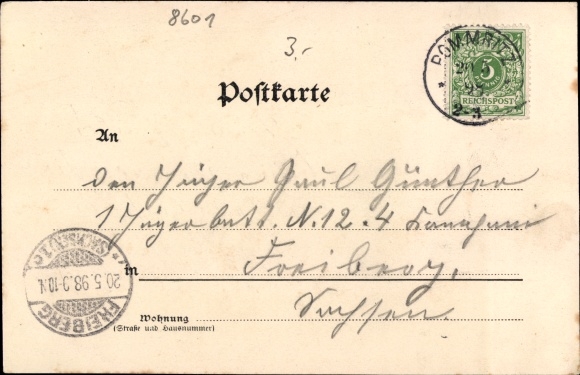 8601
3.-
POMMRITZ
20
5
98
2-3
5
REICHSPOST
Postkarte
An
den Jäger Paul Günther
1 Jägerbatt. N. 12. 4 Kompani
in Freiberg,
Sachsen.
Wohnung
(Straße und Hausnummer)
FREIBERG
20.5.98.9-10N.
(SACHSEN) 1c